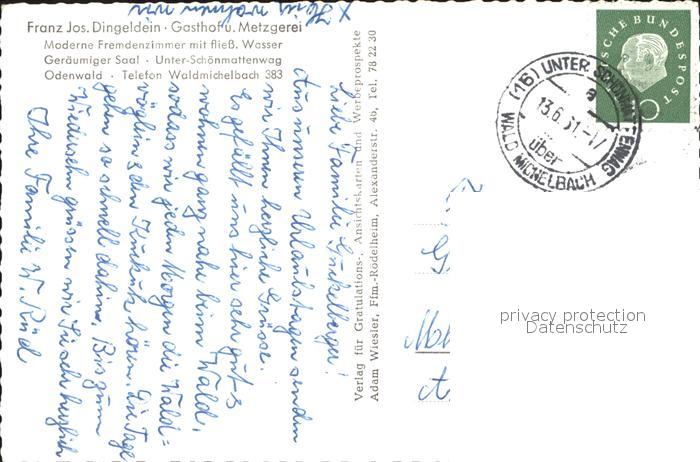 x Hier wohnen wir
Franz Jos. Dingeldein · Gasthof u. Metzgerei
Moderne Fremdenzimmer mit fließ. Wasser
Geräumiger Saal · Unter-Schönmattenwag
Odenwald · Telefon Waldmichelbach 383
Liebe Familie Gückelberger!
Aus unseren Urlaubstagen senden
wir Ihnen herzliche Grüsse.
Es gefällt uns hier sehr gut &
wohnen ganz nahe beim Wald,
sodass wir jeden Morgen die Wald=
vöglein & den Kuckuck hören. Die Tage
gehen so schnell dahin. Bis zum
Wiedersehn grüssen wir Sie sehr herzlich
Ihre Familie W. Rüd
Verlag für Gratulations-, Ansichtskarten und Werbeprospekte
Adam Wiesler, Ffm-Rödelheim, Alexanderstr. 46, Tel. 78 22 30
SCHE BUNDESPOST
(16) UNTER SCHÖNMATTENWAG
a
13.6.61.-17
über
WALD MICHELBACH
privacy protection
Datenschutz